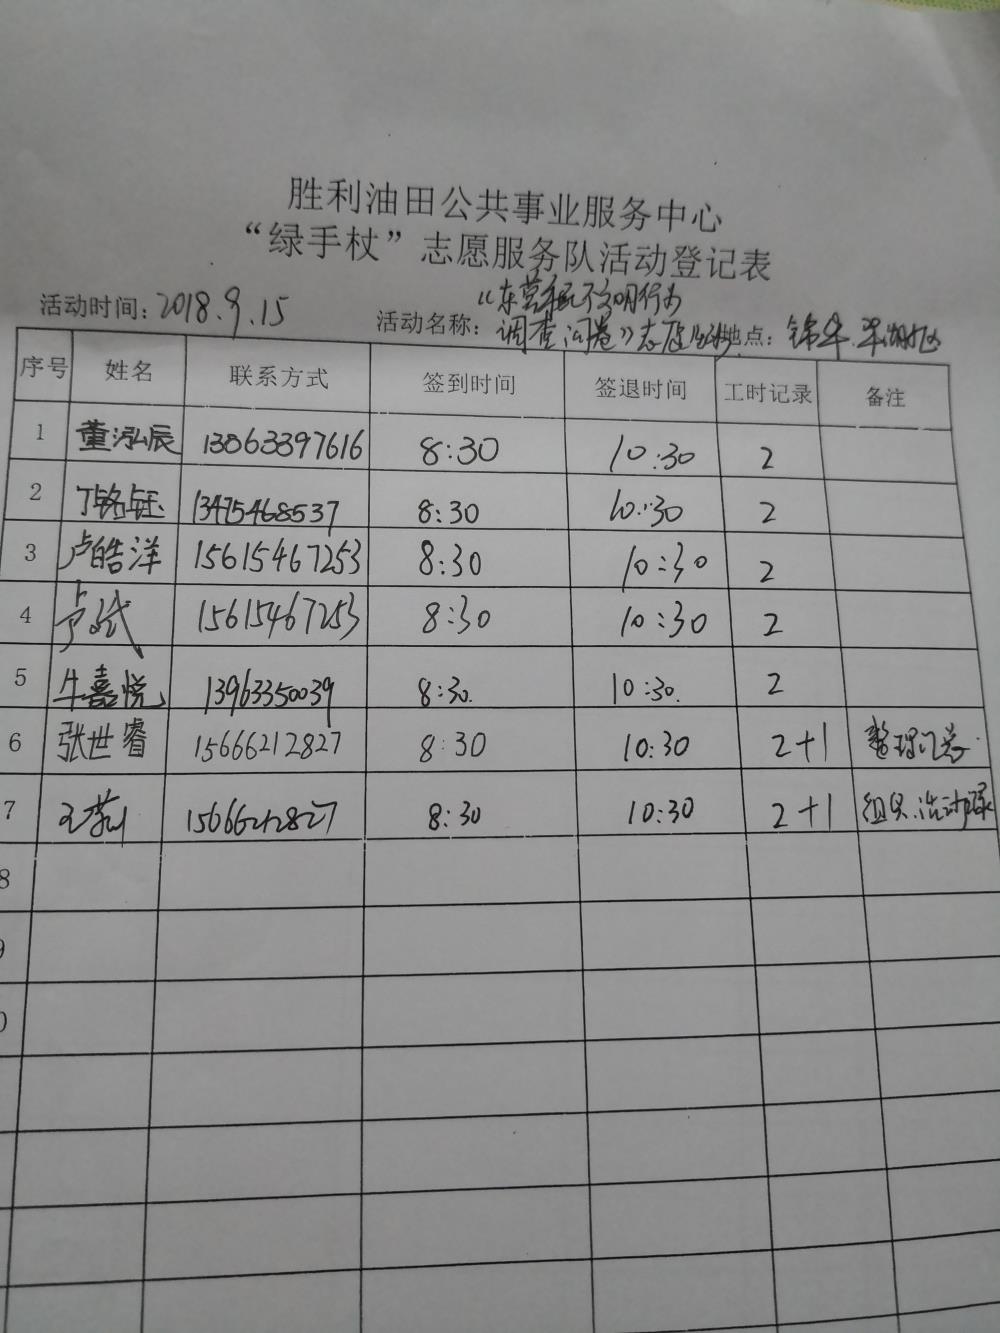 胜利油田公共事业服务中心
“绿手杖”志愿服务队活动登记表
活动时间：2018.9.15 活动名称：《东营市民不文明行为
调查问卷》志愿 地点：锦华
序号 姓名 联系方式 签到时间 签退时间 工时记录 备注
1 董泓辰 13863397616 8:30 10:30 2
2 丁铭钰 13475468537 8:30 10:30 2
3 卢皓洋 15615467253 8:30 10:30 2
4 15615467253 8:30 10:30 2
5 牛嘉悦 13963350039 8:30. 10:30. 2
6 张世睿 15666212827 8:30 10:30 2+1 整理汇总
7 15666212827 8:30 10:30 2+1 组织.活动
8
9
0